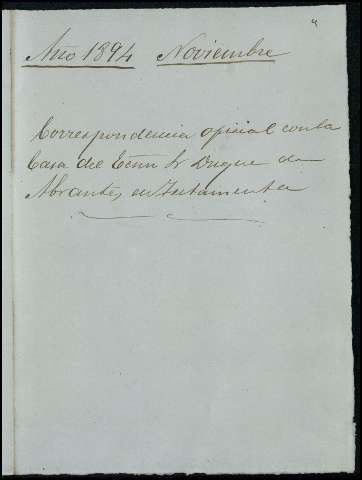 Año 1894 Noviembre
Correspondencia oficial con la
Casa del Excmo Sr Duque de
Abrantes, en Testamentaria